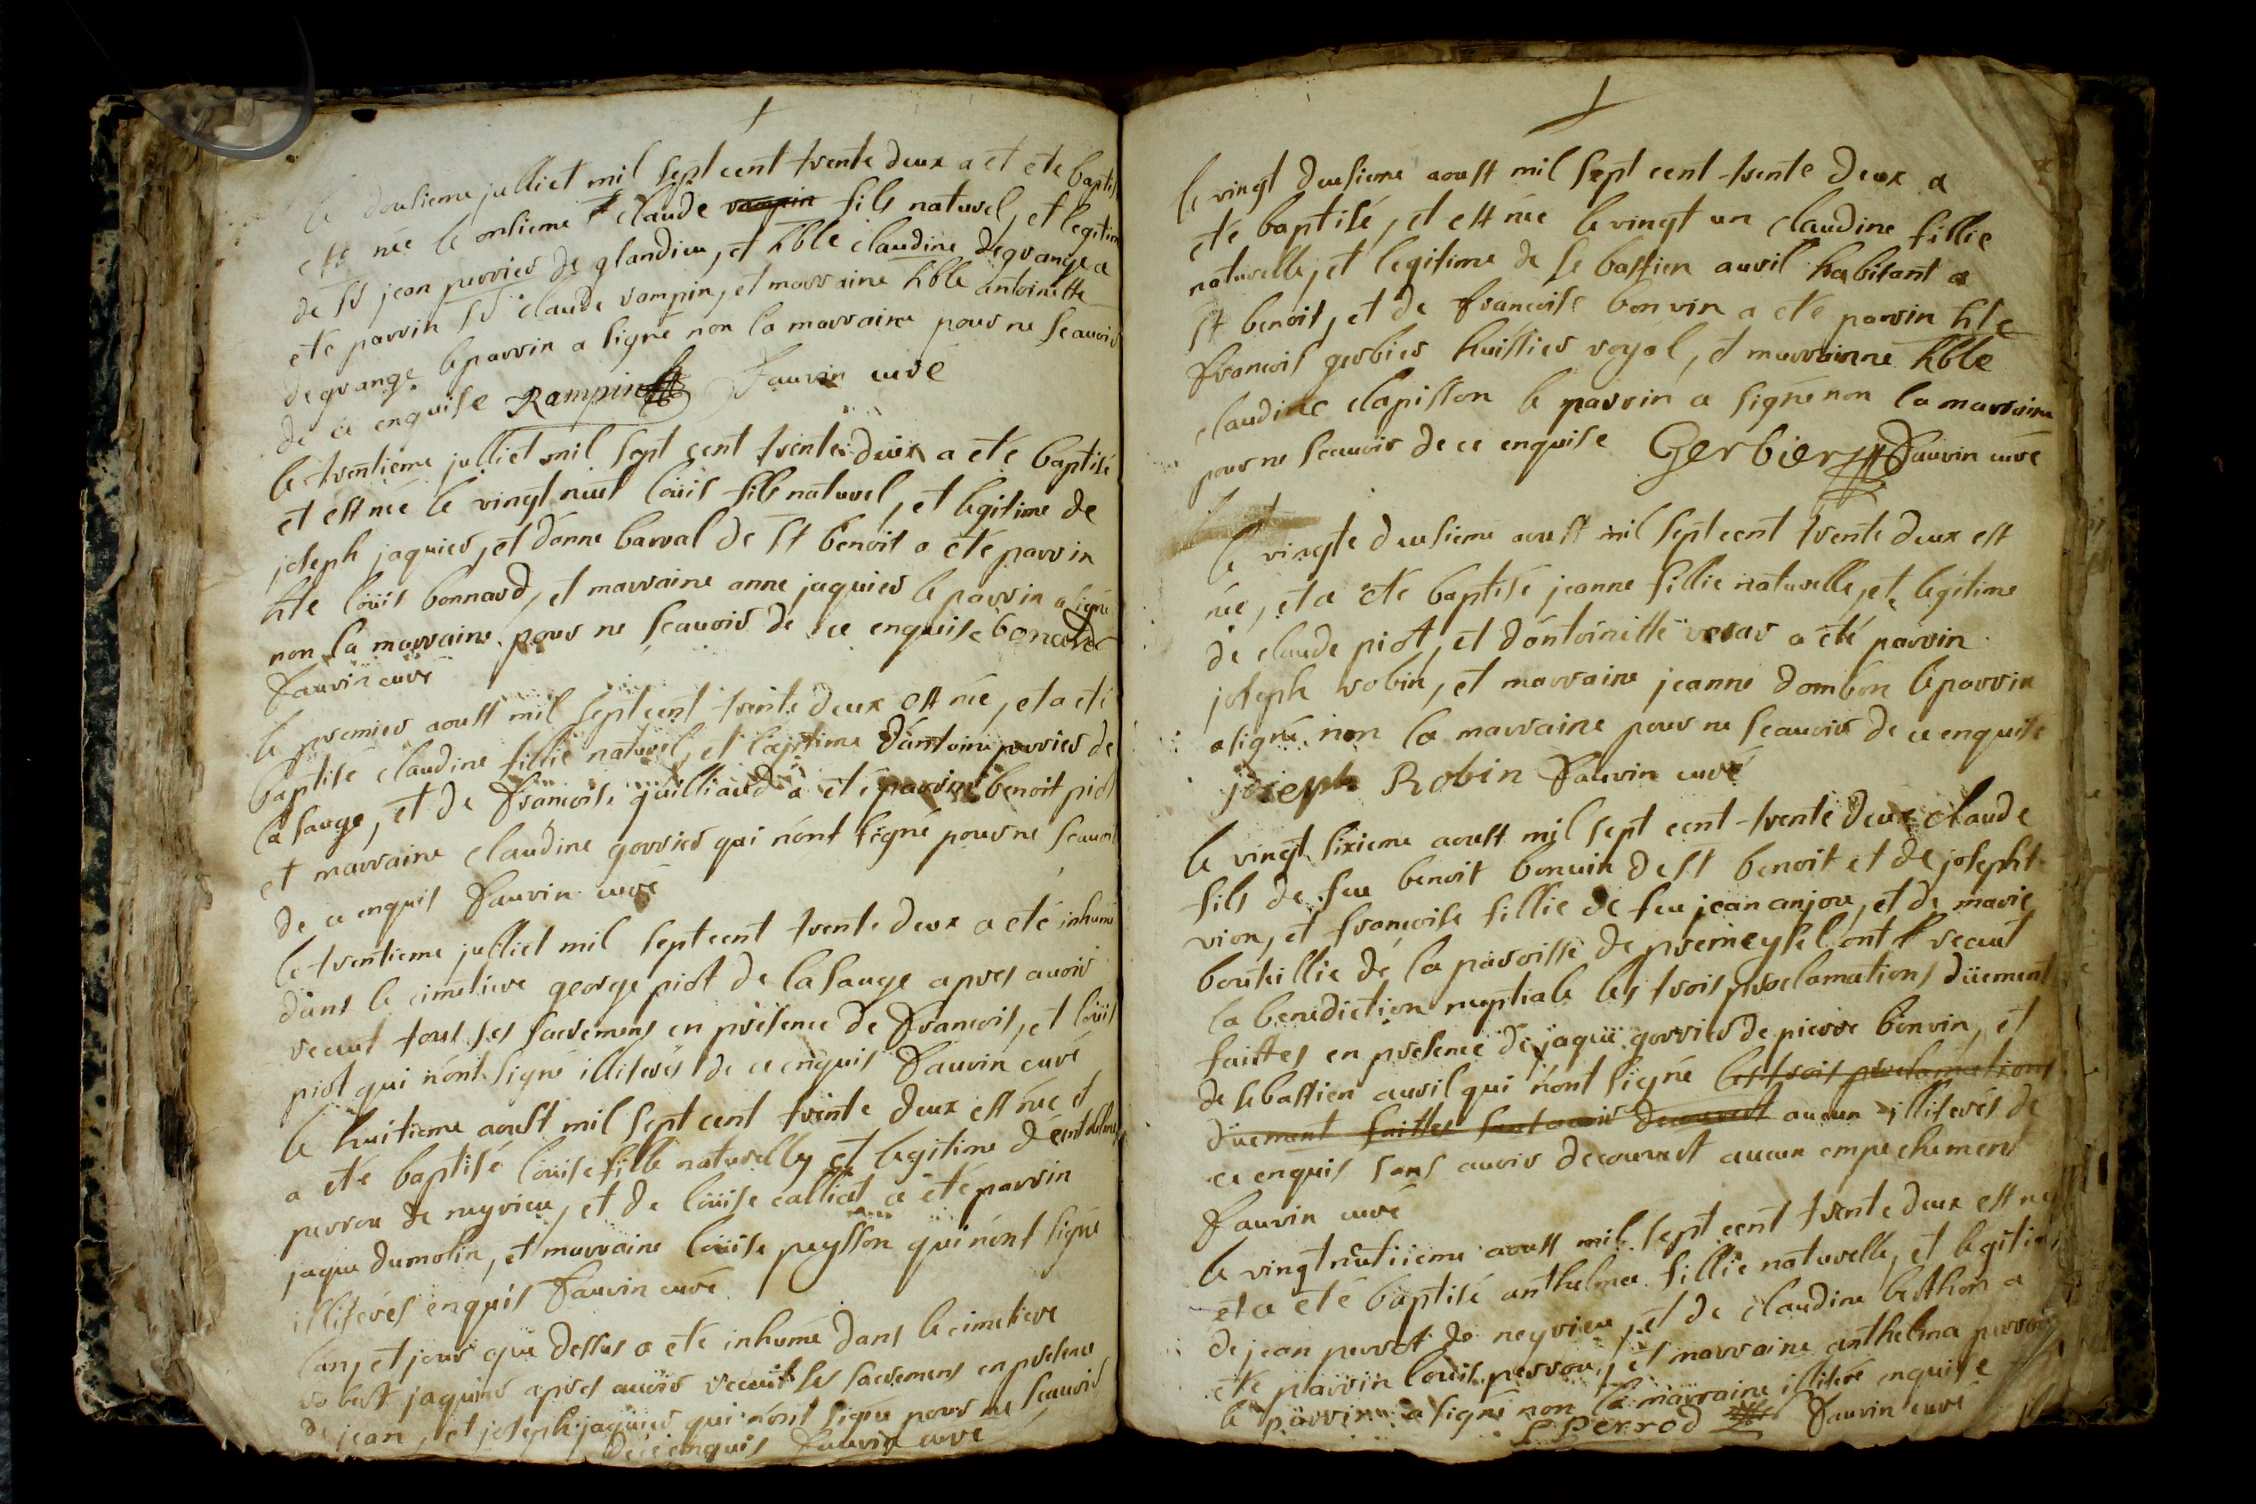 le dousieme julliet mil sept cent trente deux a et ete baptis
est née le onsieme claude rampin fils naturel, et legitim
de Sr jean perrier de glandieu, et hble claudine degrange a
ete parrin Sr claude rampin, et marraine hble antoinette
degrange le parrin a signé non la marraine pour ne scauoir
de ce enquise Rampin fauvin curé
le trentieme julliet mil sept cent trente deux a eté baptisé
et est née le vingt nuit loüis fils naturel, et legitime de
joseph jaquier, et d'anne barral de St benoit a eté parrin
hte loüis bonnard, et marraine anne jaquier le parrin a signé
non la marraine pour ne scauoir de ce enquise bonard
fauvin curé
le premier aoust mil sept cent trente deux est née, et a eté
baptisé claudine fillie naturel, et legitime d'antoine perrier de
la sauge, et de francoise guilliaud a eté parrin benoit piot
et marraine claudine gorrier qui n'ont signé pour ne scauoir
de ce enquis fauvin curé
le trentieme julliet mil sept cent trente deux a eté inhumé
dans le cimetiere george piot de la sauge apres auoir
receut tous ses sacremens en présence de francois, et loüis
piot qui n'ont signé illiterés de ce enquis fauvin curé
le huitieme aoust mil sept cent trente deux est née et
a eté baptisé loüise fille naturelle, et legitime d'enthelme
perrou de neyrieu, et de loüise calliat a eté parrin
jaque dumolin, et marraine loüise peysson qui n'ont signé
illiterés enquis fauvin curé
l'an, et jour que dessus a eté inhumé dans le cimetiere
robert jaquier apres auoir receut ses sacremens en présence
de jean, et joseph jaquier qui n'ont signé pour ne scauoir
de ce enquis fauvin curé
le vingt deusieme aoust mil sept cent trente deux a
eté baptisé, et est née le vingt un claudine fillie
naturelle, et legitime de sebastien auril habitant a
St benoit, et de francoise bonvin a eté parrin hte
francois gerbier huissier royal, et marrainne hble
claudine clapisson le parrin a signé non la marraine
pour ne scauoir de ce enquise Gerbier fauvin curé
le vingte deusieme aoust mil sept cent trente deux est
née, et a eté baptisé jeanne fillie naturelle, et legitime
de claude piot, et d'antoinette veras a eté parrin
joseph robin, et marraine jeanne dombon le parrin
a signé non la marraine pour ne scauoir de ce enquise
joseph Robin fauvin curé
le vingt sixieme aoust mil sept cent trente deux claude
fils de feu benoit bonuin de St benoit et de josepht
vion, et francoise fillie de feu jean anjou, et de marie
bouteillie de la paroisse de premeysel ont receut
la benediction nuptiale les trois proclamations düement
faittes en presence de jaque gorrier de pierre bonvin, et
de sebastien auril qui n'ont signé les trois proclamations
düement faittes sans auoir decouvert aucun illiterés de
ce enquis sans auoir decouvert aucun empechement
fauvin curé
le vingt nutiieme aoust mil sept cent trente deux est né
et a eté baptisé anthelmea fillie naturelle, et legitime
de jean perrot de neyrieu, et de claudine berthon a
eté parrin loüis perrou, et marraine anthelma perrou
le parrin a signé non la marraine illiteré enquise
L Perrod fauvin curé